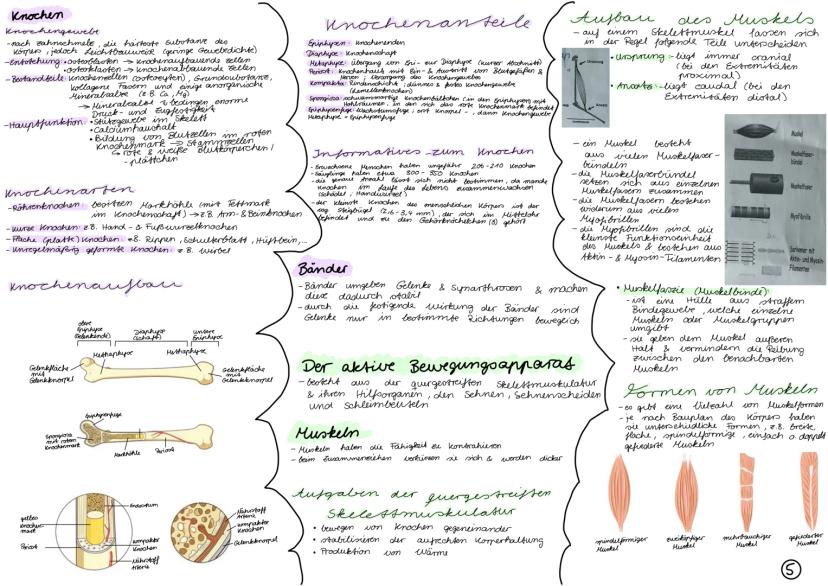 Knochen
Knochengewebe
-nach Zahnschmelz, die härteste Substanz des
Körpers, jedoch Leichtbauweise (geringe Gewebedichte)
-Entstehung: •Osteoblasten → knochenaufbauende Zellen
•Osteoklasten → knochenabbauende Zellen
-Bestandteile: Knochenzellen (Osteozyten), Grundsubstanz,
kollagene Fasern und einige anorganische
Mineralsalze (z.B. Ca, Mg)
→ Mineralsalze bedingen enorme
Druck- und Zugfestigkeit
-Hauptfunktion: •Stützgewebe im Skelett
•Calciumhaushalt
•Bildung von Blutzellen im roten
Knochenmark → Stammzellen
↳ rote & weiße Blutkörperchen/
-plättchen
Knochenarten
-Röhrenknochen: besitzen Markhöhle (mit Fettmark
im Knochenschaft) → z.B. Arm- & Beinknochen
-kurze Knochen: z.B. Hand- & Fußwurzelknochen
-Flache (platte) Knochen: z.B. Rippen, Schulterblatt, Hüftbein,...
-Unregelmäßig geformte Knochen: z.B. Wirbel
Knochenaufbau
obere
Epiphyse
(Gelenkende)
Diaphyse
(Schaft)
untere
Epiphyse
Metaphyse
Metaphyse
Gelenkfläche
mit
Gelenkknorpel
Gelenkfläche
mit
Gelenkknorpel
Epiphysenfuge
Spongiosa
mit rotem
Knochenmark
Markhöhle
Periost
gelbes
Knochenmark
Periost
Endostium
kompakter
Knochen
Nährstoff
Arterie
Nährstoff
Arterie
kompakter
Knochen
Gelenkknorpel
Knochenanteile
Epiphysen: Knochenenden
Diaphyse: Knochenschaft
Metaphyse: Übergang von Epi- zur Diaphyse (kurzer Abschnitt)
Periost: Knochenhaut mit Ein- & Austritt von Blutgefäßen &
Nerven; Versorgung des Knochengewebes
Kompakta: Rindenschicht; dünnes & festes Knochengewebe
(Lamellenknochen)
Spongiosa: schwammartige Knochenbälkchen (in den Epiphysen) mit
Hohlräumen, in den sich das rote Knochenmark befindet
Epiphysenfuge: Wachstumsfuge; erst Knorpel-, dann Knochengewebe
Metaphyse + Epiphysenfuge
Informatives zum Knochen
-Erwachsene Menschen haben ungefähr 206-210 Knochen
-Säuglinge haben etwa 300-350 Knochen
-die genaue Anzahl lässt sich nicht bestimmen, da manche
Knochen im Laufe des Lebens zusammenwachsen
(Schädel/Handwurzel)
-der kleinste Knochen des menschlichen Körpers ist der
sog. Steigbügel (2,6-3,4 mm), der sich im Mittelohr
befindet und zu den Gehörknöchelchen (3) gehört
Bänder
-Bänder umgeben Gelenke & Synarthrosen & machen
diese dadurch stabil
-durch die festigende Wirkung der Bänder sind
Gelenke nur in bestimmte Richtungen beweglich
Der aktive Bewegungsapparat
-besteht aus der quergestreiften Skelettmuskulatur
& ihren Hilfsorganen, den Sehnen, Sehnenscheiden
und Schleimbeuteln
Muskeln
-Muskeln haben die Fähigkeit zu kontrahieren
-beim Zusammenziehen verkürzen sie sich & werden dicker
Aufgaben der quergestreiften
Skelettmuskulatur
• bewegen von Knochen gegeneinander
• stabilisieren der aufrechten Körperhaltung
• Produktion von Wärme
Aufbau des Muskels
-auf einem Skelettmuskel lassen sich
in der Regel folgende Teile unterscheiden
•Ursprung: liegt immer cranial
(bei den Extremitäten
proximal)
•Ansatz: liegt caudal (bei den
Extremitäten distal)
Ursprung
Ansatz
-ein Muskel besteht
aus vielen Muskelfaser-
bündeln
-die Muskelfaserbündel
setzen sich aus einzelnen
Muskelfasern zusammen
-die Muskelfasern bestehen
wiederum aus vielen
Myofibrillen
-die Myofibrillen sind die
kleinste Funktionseinheit
des Muskels & bestehen aus
Aktin- & Myosin-Filamenten
Muskel
Muskelfaser-
bündel
Muskelfaser
Myofibrille
Sarkomer mit
Aktin- und Myosin-
Filamenten
•Muskelfaszie (Muskelbinde)
-ist eine Hülle aus straffem
Bindegewebe, welche einzelne
Muskeln oder Muskelgruppen
umgibt
-sie geben dem Muskel äußeren
Halt & vermindern die Reibung
zwischen den benachbarten
Muskeln
Formen von Muskeln
-es gibt eine Vielzahl von Muskelformen
-je nach Bauplan des Körpers haben
sie unterschiedliche Formen, z.B. breite,
flache, spindelförmige, einfach o. doppelt
gefiederte Muskeln
spindelförmiger
Muskel
zweiköpfiger
Muskel
mehrbauchiger
Muskel
gefiederter
Muskel
5